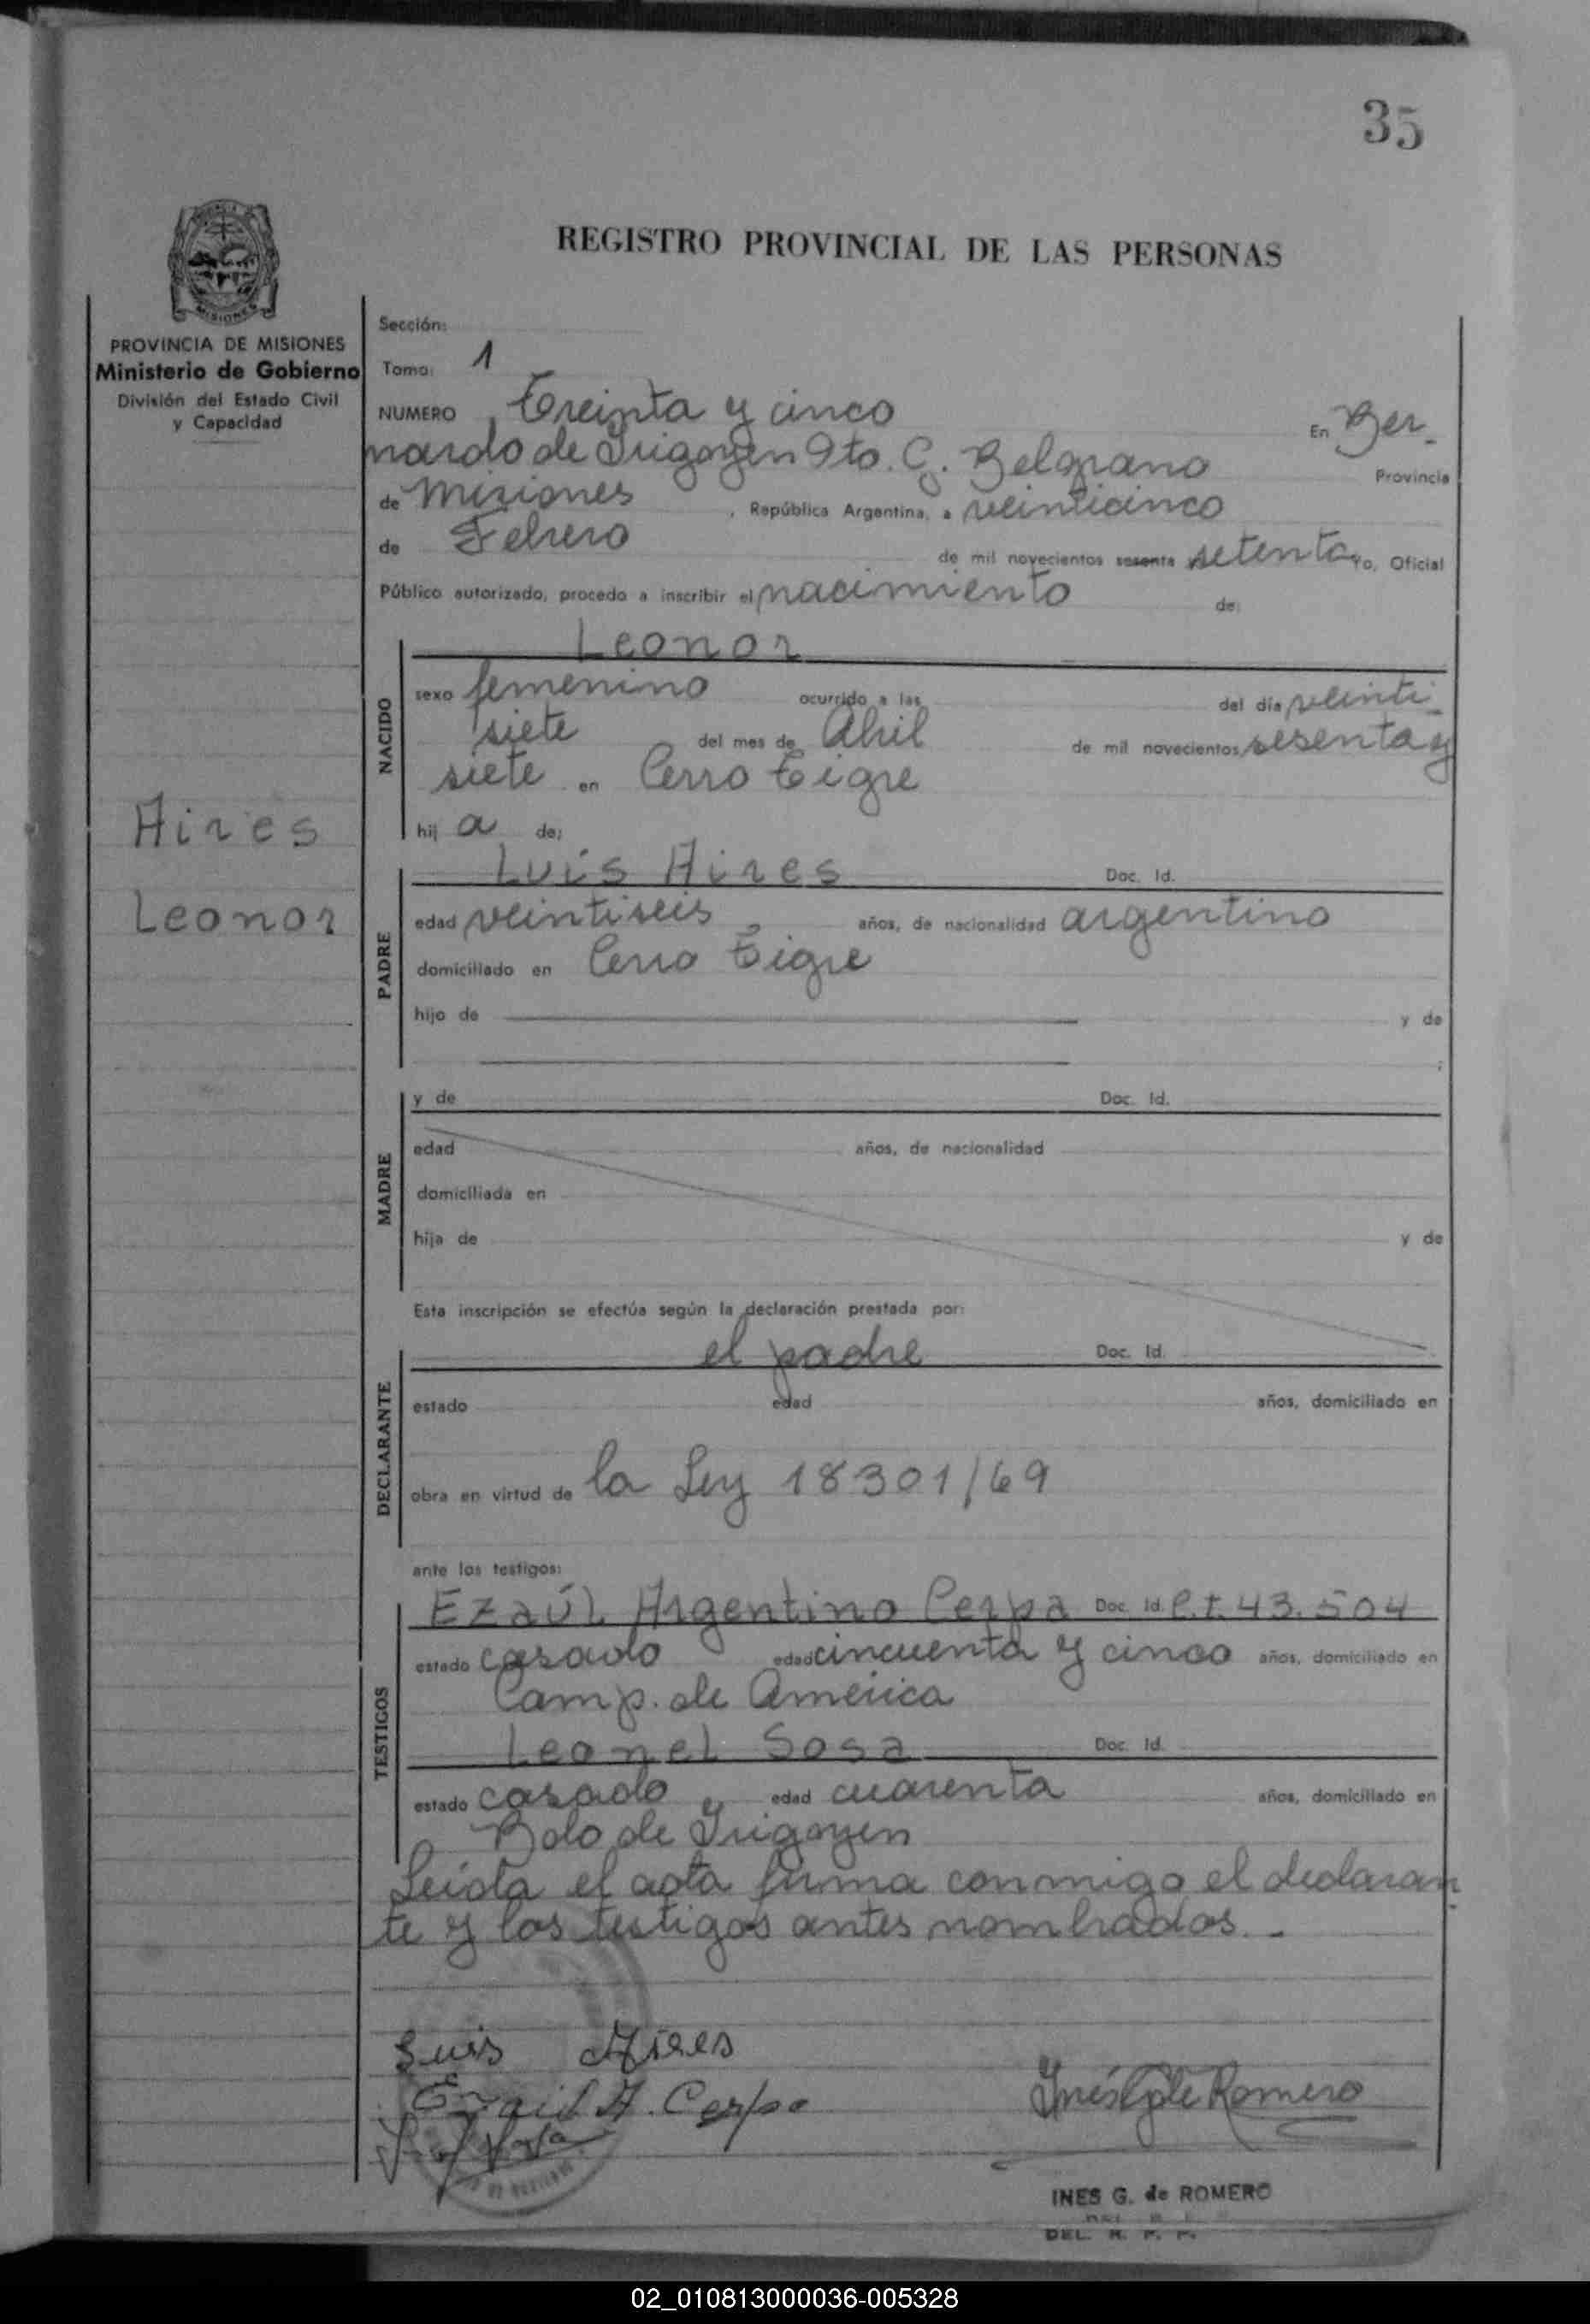 35
REGISTRO PROVINCIAL DE LAS PERSONAS
MISIONES
PROVINCIA DE MISIONES
Ministerio de Gobierno
División del Estado Civil
y Capacidad
Aires
Leonor
Sección:
Tomo: 1
NUMERO Treinta y cinco En Ber-
nardo de Irigoyen Dto. G. Belgrano Provincia
de Misiones, República Argentina, a veinticinco
de Febrero de mil novecientos sesenta setenta Yo, Oficial
Público autorizado, procedo a inscribir el nacimiento de:
NACIDO
Leonor
sexo femenino ocurrido a las del día veinti-
siete del mes de Abril de mil novecientos sesenta y
siete en Cerro Tigre
hij a de:
PADRE
Luis Aires Doc. Id.
edad veintiseis años, de nacionalidad argentino
domiciliado en Cerro Tigre
hijo de y de
;
MADRE
y de Doc. Id.
edad años, de nacionalidad
domiciliada en
hija de y de
Esta inscripción se efectúa según la declaración prestada por:
DECLARANTE
el padre Doc. Id.
estado edad años, domiciliado en
obra en virtud de la Ley 18301/69
ante los testigos:
TESTIGOS
Ezaúl Argentino Cerpa Doc. Id. C.I. 43.504
estado casado edad cincuenta y cinco años, domiciliado en
Camp. de América
Leonel Sosa Doc. Id.
estado casado edad cuarenta años, domiciliado en
Bdo de Irigoyen
Leída el acta firma conmigo el declaran-
te y los testigos antes nombrados.-
Luis Aires
A. Cerpa
Inés G de Romero
INES G. de ROMERO
DEL. R. P. P.
02_010813000036-005328